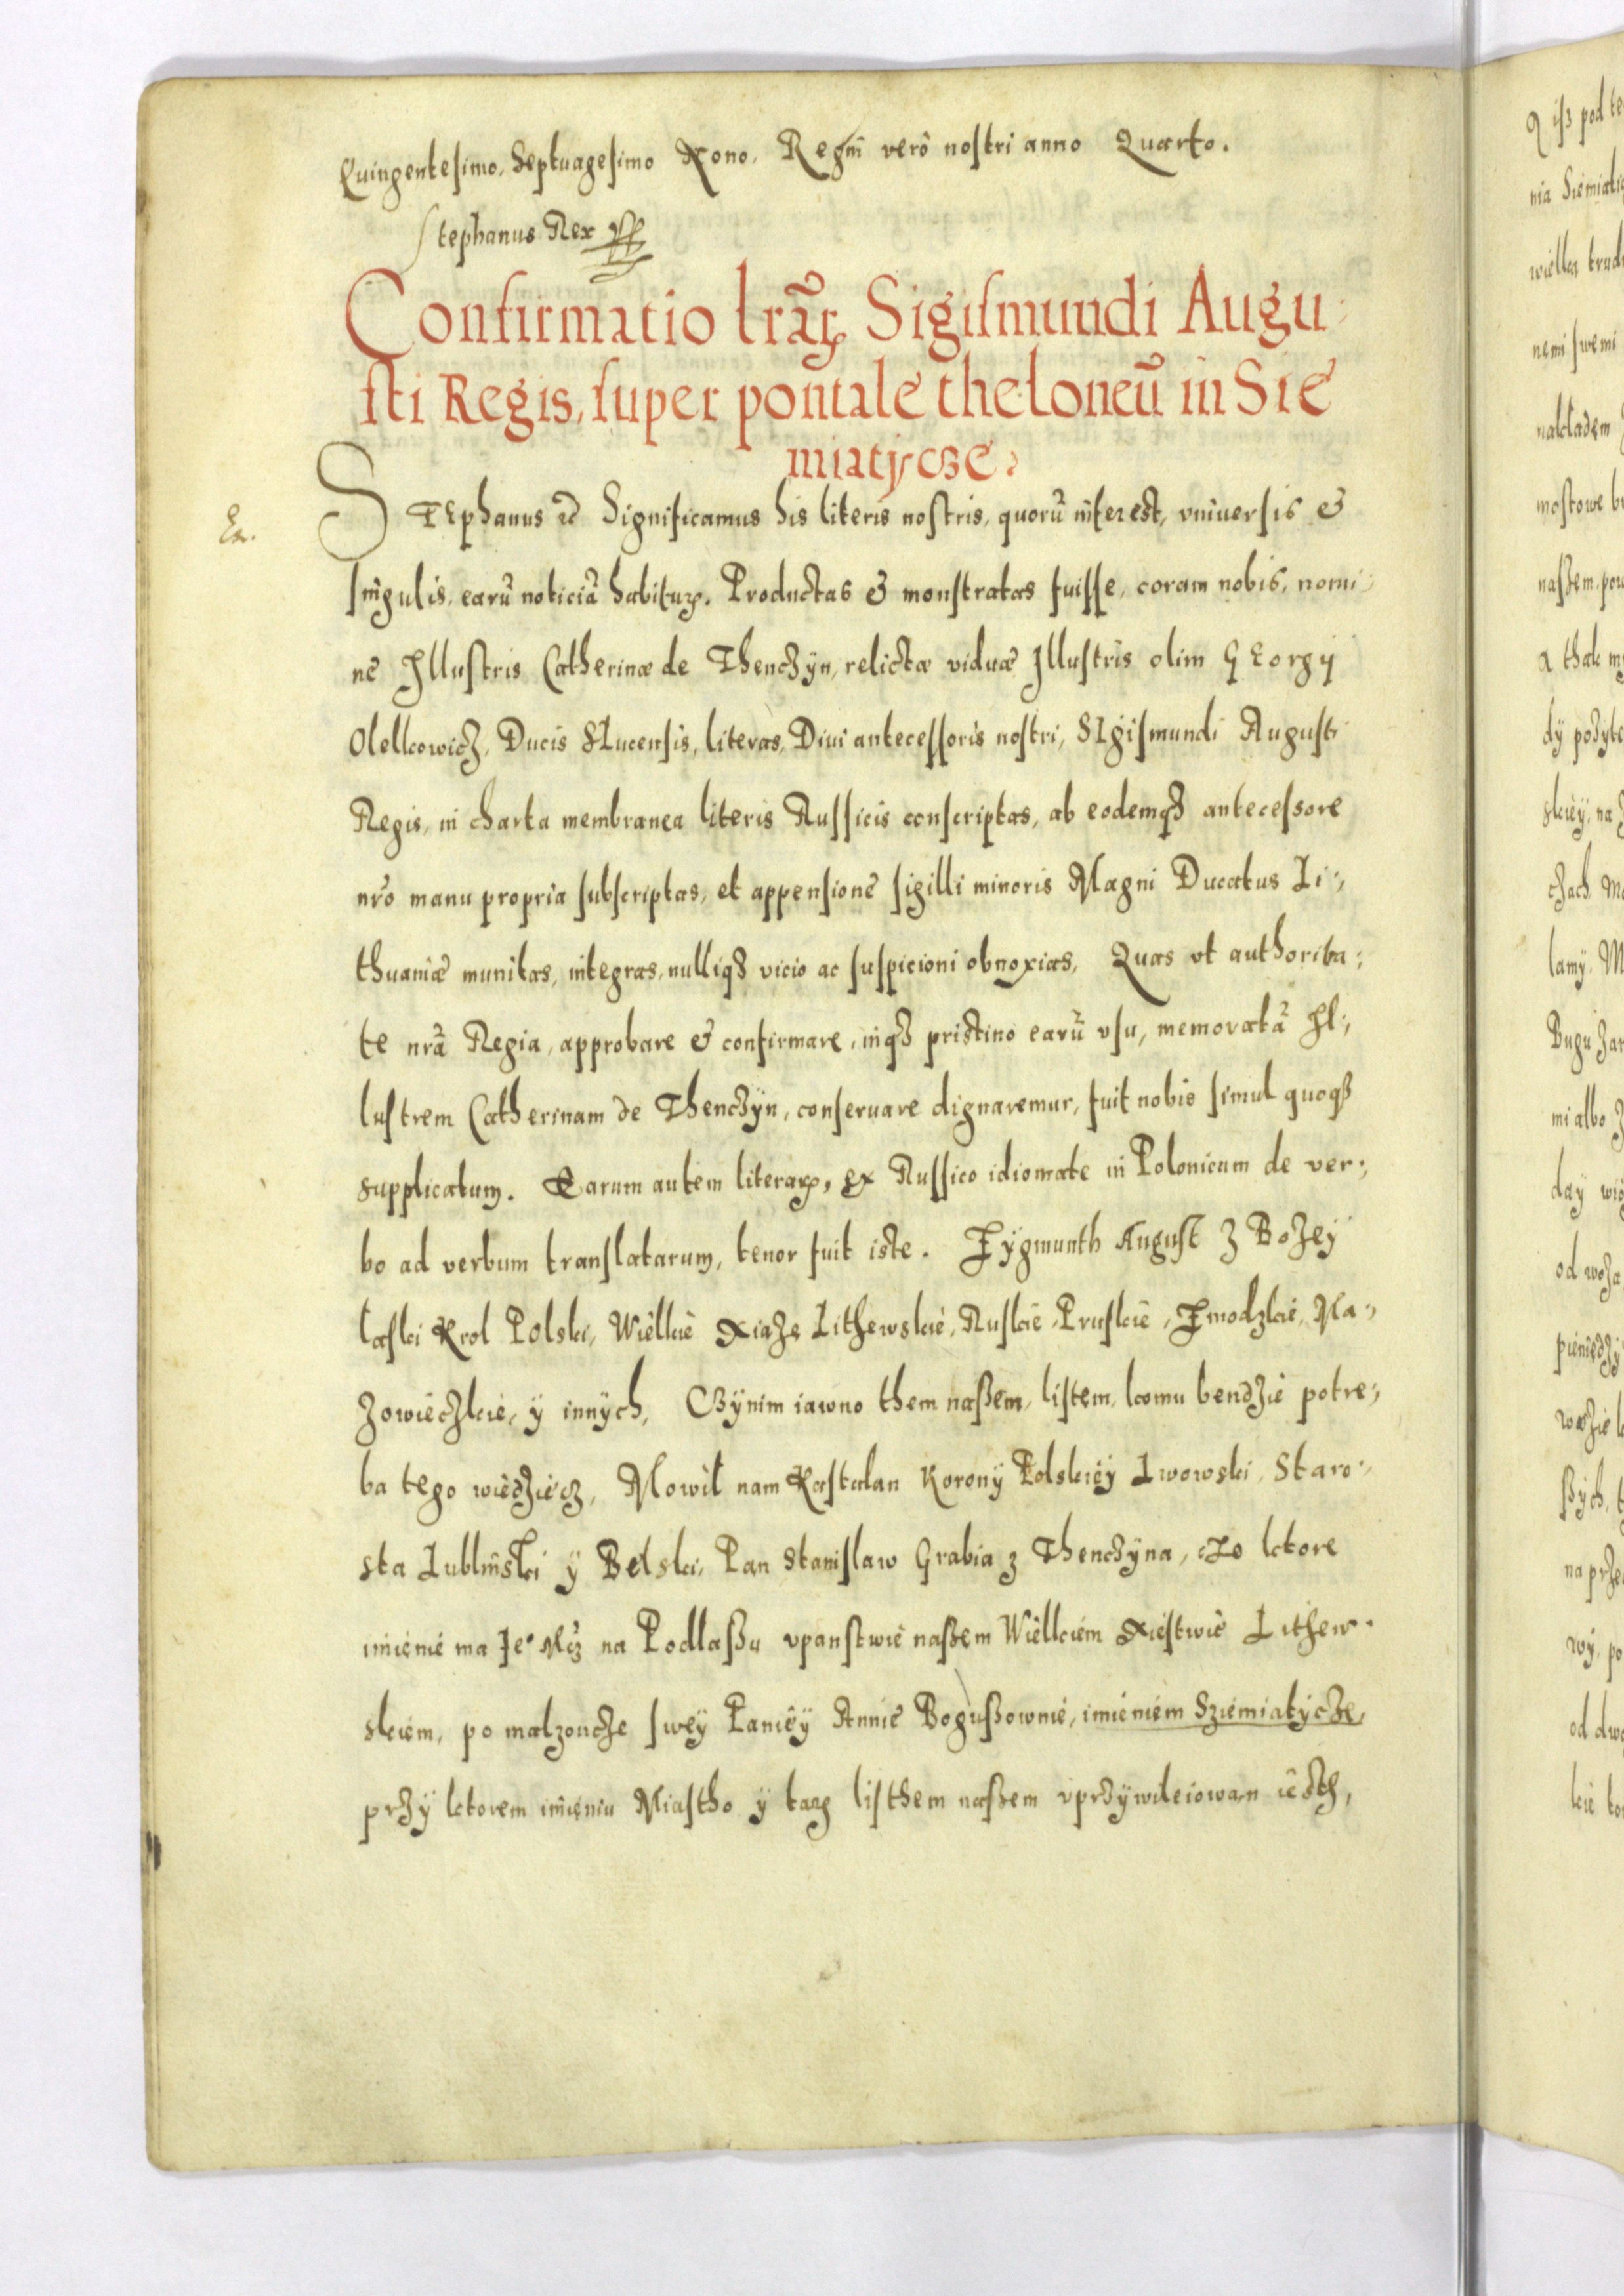 Quingentesimo, Septuagesimo Nono, Regni verò nostri anno Quarto.
Stephanus Rex
Confirmatio lrãꝝ Sigismundi Augu
sti Regis, super pontale theloneũ in Sie
miatÿcze.
STEphanus ꝛc̃ Significamus his literis nostris, quorũ interest, vniuersis &
singulis, earũ noticiã habituꝝ. Productas & monstratas fuisse, coram nobis, nomi
ne Jllustris Catherinæ de Thenczÿn, relictæ viduæ Jllustris olim GEorgij
Olelkowicz, Ducis Slucensis, literas, Diui antecessoris nostri, SIgismundi Augusti
Regis, in charta membranea literis Russicis conscriptas, ab eodemqꝫ antecessore
nr̃o manu propria subscriptas, et appensione sigilli minoris Magni Ducatus Li:
thuaniæ munitas, integras, nulliqꝫ vicio ac suspicioni obnoxias, Quas vt authorita:
te nr̃a Regia, approbare & confirmare, inqꝫ pristino earũ vsu, memoratã Jl:
lustrem Catherinam de Thenczÿn, conseruare dignaremur, fuit nobis simul quoqꝫ
supplicatum. Earum autem literaꝝ, ex Russico idiomate in Polonicum de ver:
bo ad verbum translatarum, tenor fuit iste. Zÿgmunth August z Bozeÿ
laski Krol Polski, Wielkie Xiaze Lithewskie, Ruskie, Pruskie, Zmodzkie, Ma:
zowieczkie, ÿ innÿch, Czÿnim iawno them naßem, listem, komu bendzie potre:
ba tego wiedziecz, Mowil nam Kastalan Koronÿ Polskieÿ Lwowski, Staro:
sta Lublinski ÿ Belski, Pan Stanislaw Grabia z Thenczÿna, czo ktore
imienie ma Je° Mcz na Podlaßu vpanstwie naßem Wielkiem Xiestwie Lithew:
skiem, po malzoncze sweÿ Panieÿ Annie Bogußownie, imieniem Sziemiatÿcze,
przÿ ktorem imieniu Miastho ÿ targ listhem naßem vprzÿwileiowan iesth,